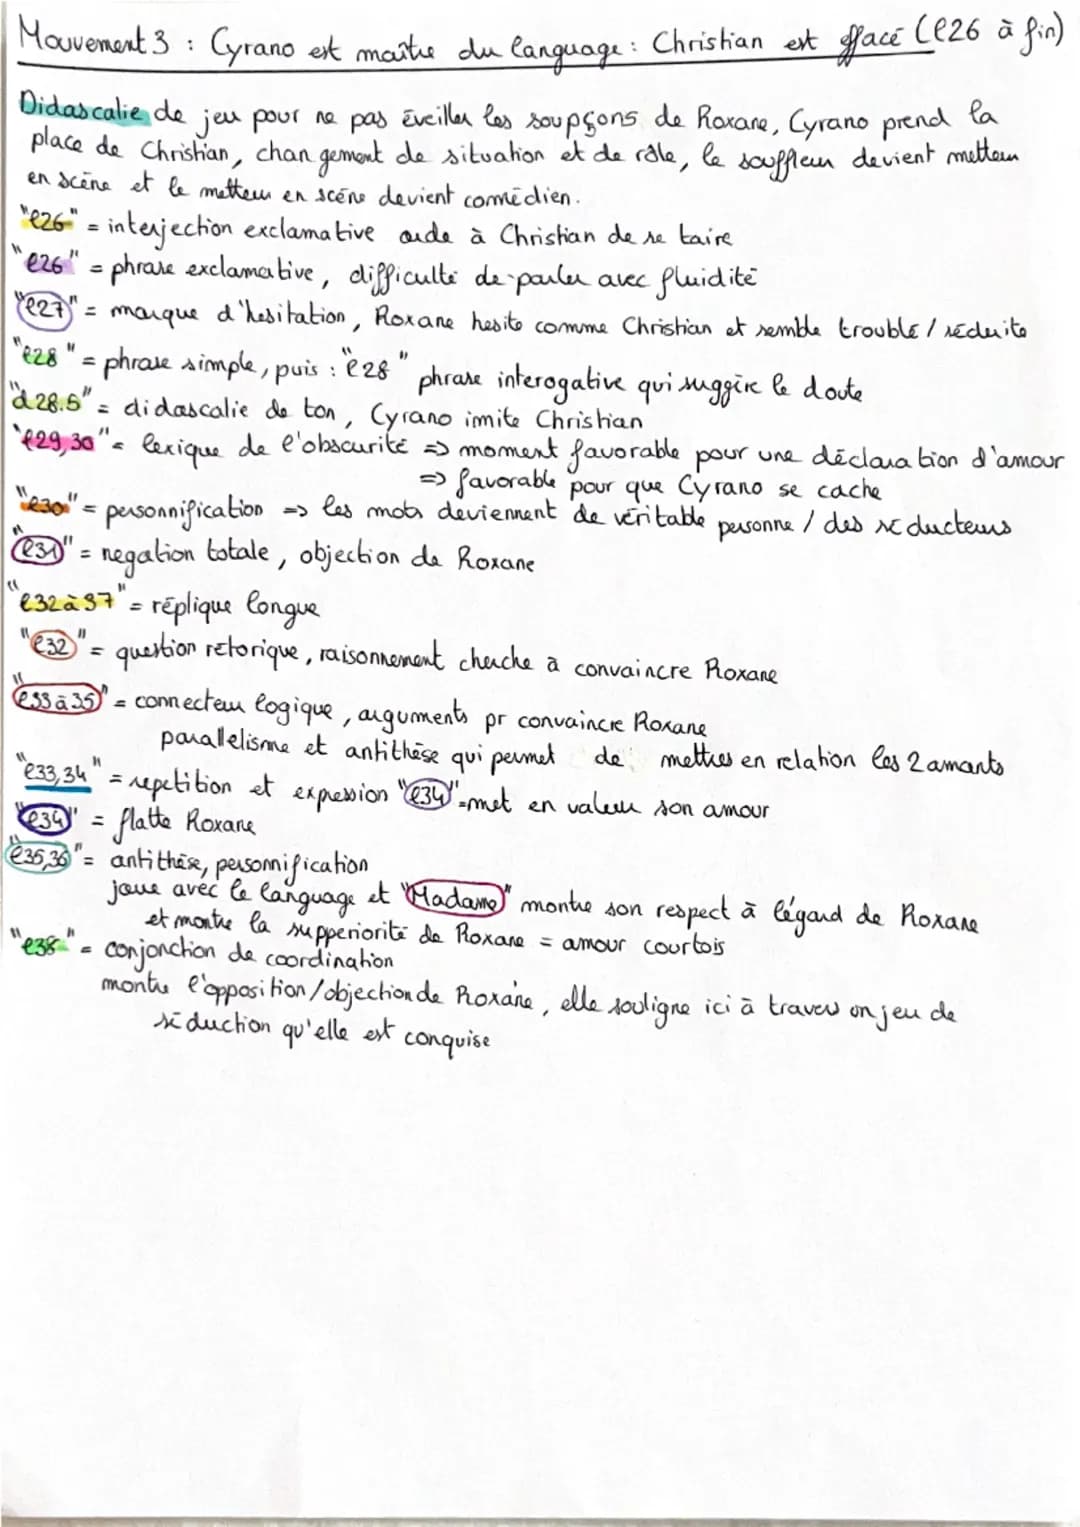 Mouvement 3 : Cyrano est maître du language : Christian est effacé (l26 à fin)
Didascalie de jeu pour ne pas éveiller les soupçons de Roxane, Cyrano prend la
place de Christian, changement de situation et de rôle, le souffleur devient metteur
en scène et le metteur en scène devient comédien.
"l26" = interjection exclamative aide à Christian de se taire
"l26" = phrase exclamative, difficulté de parler avec fluidité
"l27" = marque d'hesitation, Roxane hesite comme Christian et semble troublé / séduite
"l28" = phrase simple, puis : "l28" phrase interogative qui suggère le doute
"d28.5" = didascalie de ton, Cyrano imite Christian
"l29,30" = lexique de l'obscurité => moment favorable pour une déclaration d'amour
=> favorable pour que Cyrano se cache
"l30" = personnification => les mots deviennent de véritable personne / des séducteurs
"l31" = negation totale, objection de Roxane
"l32 à 37" = réplique longue
"l32" = question rétorique, raisonnement cherche à convaincre Roxane
"l33 à 35" = connecteur logique, arguments pr convaincre Roxane
parallelisme et antithèse qui permet de mettres en relation les 2 amants
"l33,34" = repetition et expression "l34" = met en valeur son amour
"l34" = flatte Roxane
"l35,36" = antithèse, personnification
joue avec le language et "Madame" montre son respect à l'égard de Roxane
et montre la supperiorité de Roxane = amour courtois
"l38" = conjonction de coordination
montre l'opposition/objection de Roxane, elle souligne ici à travers un jeu de
séduction qu'elle est conquise